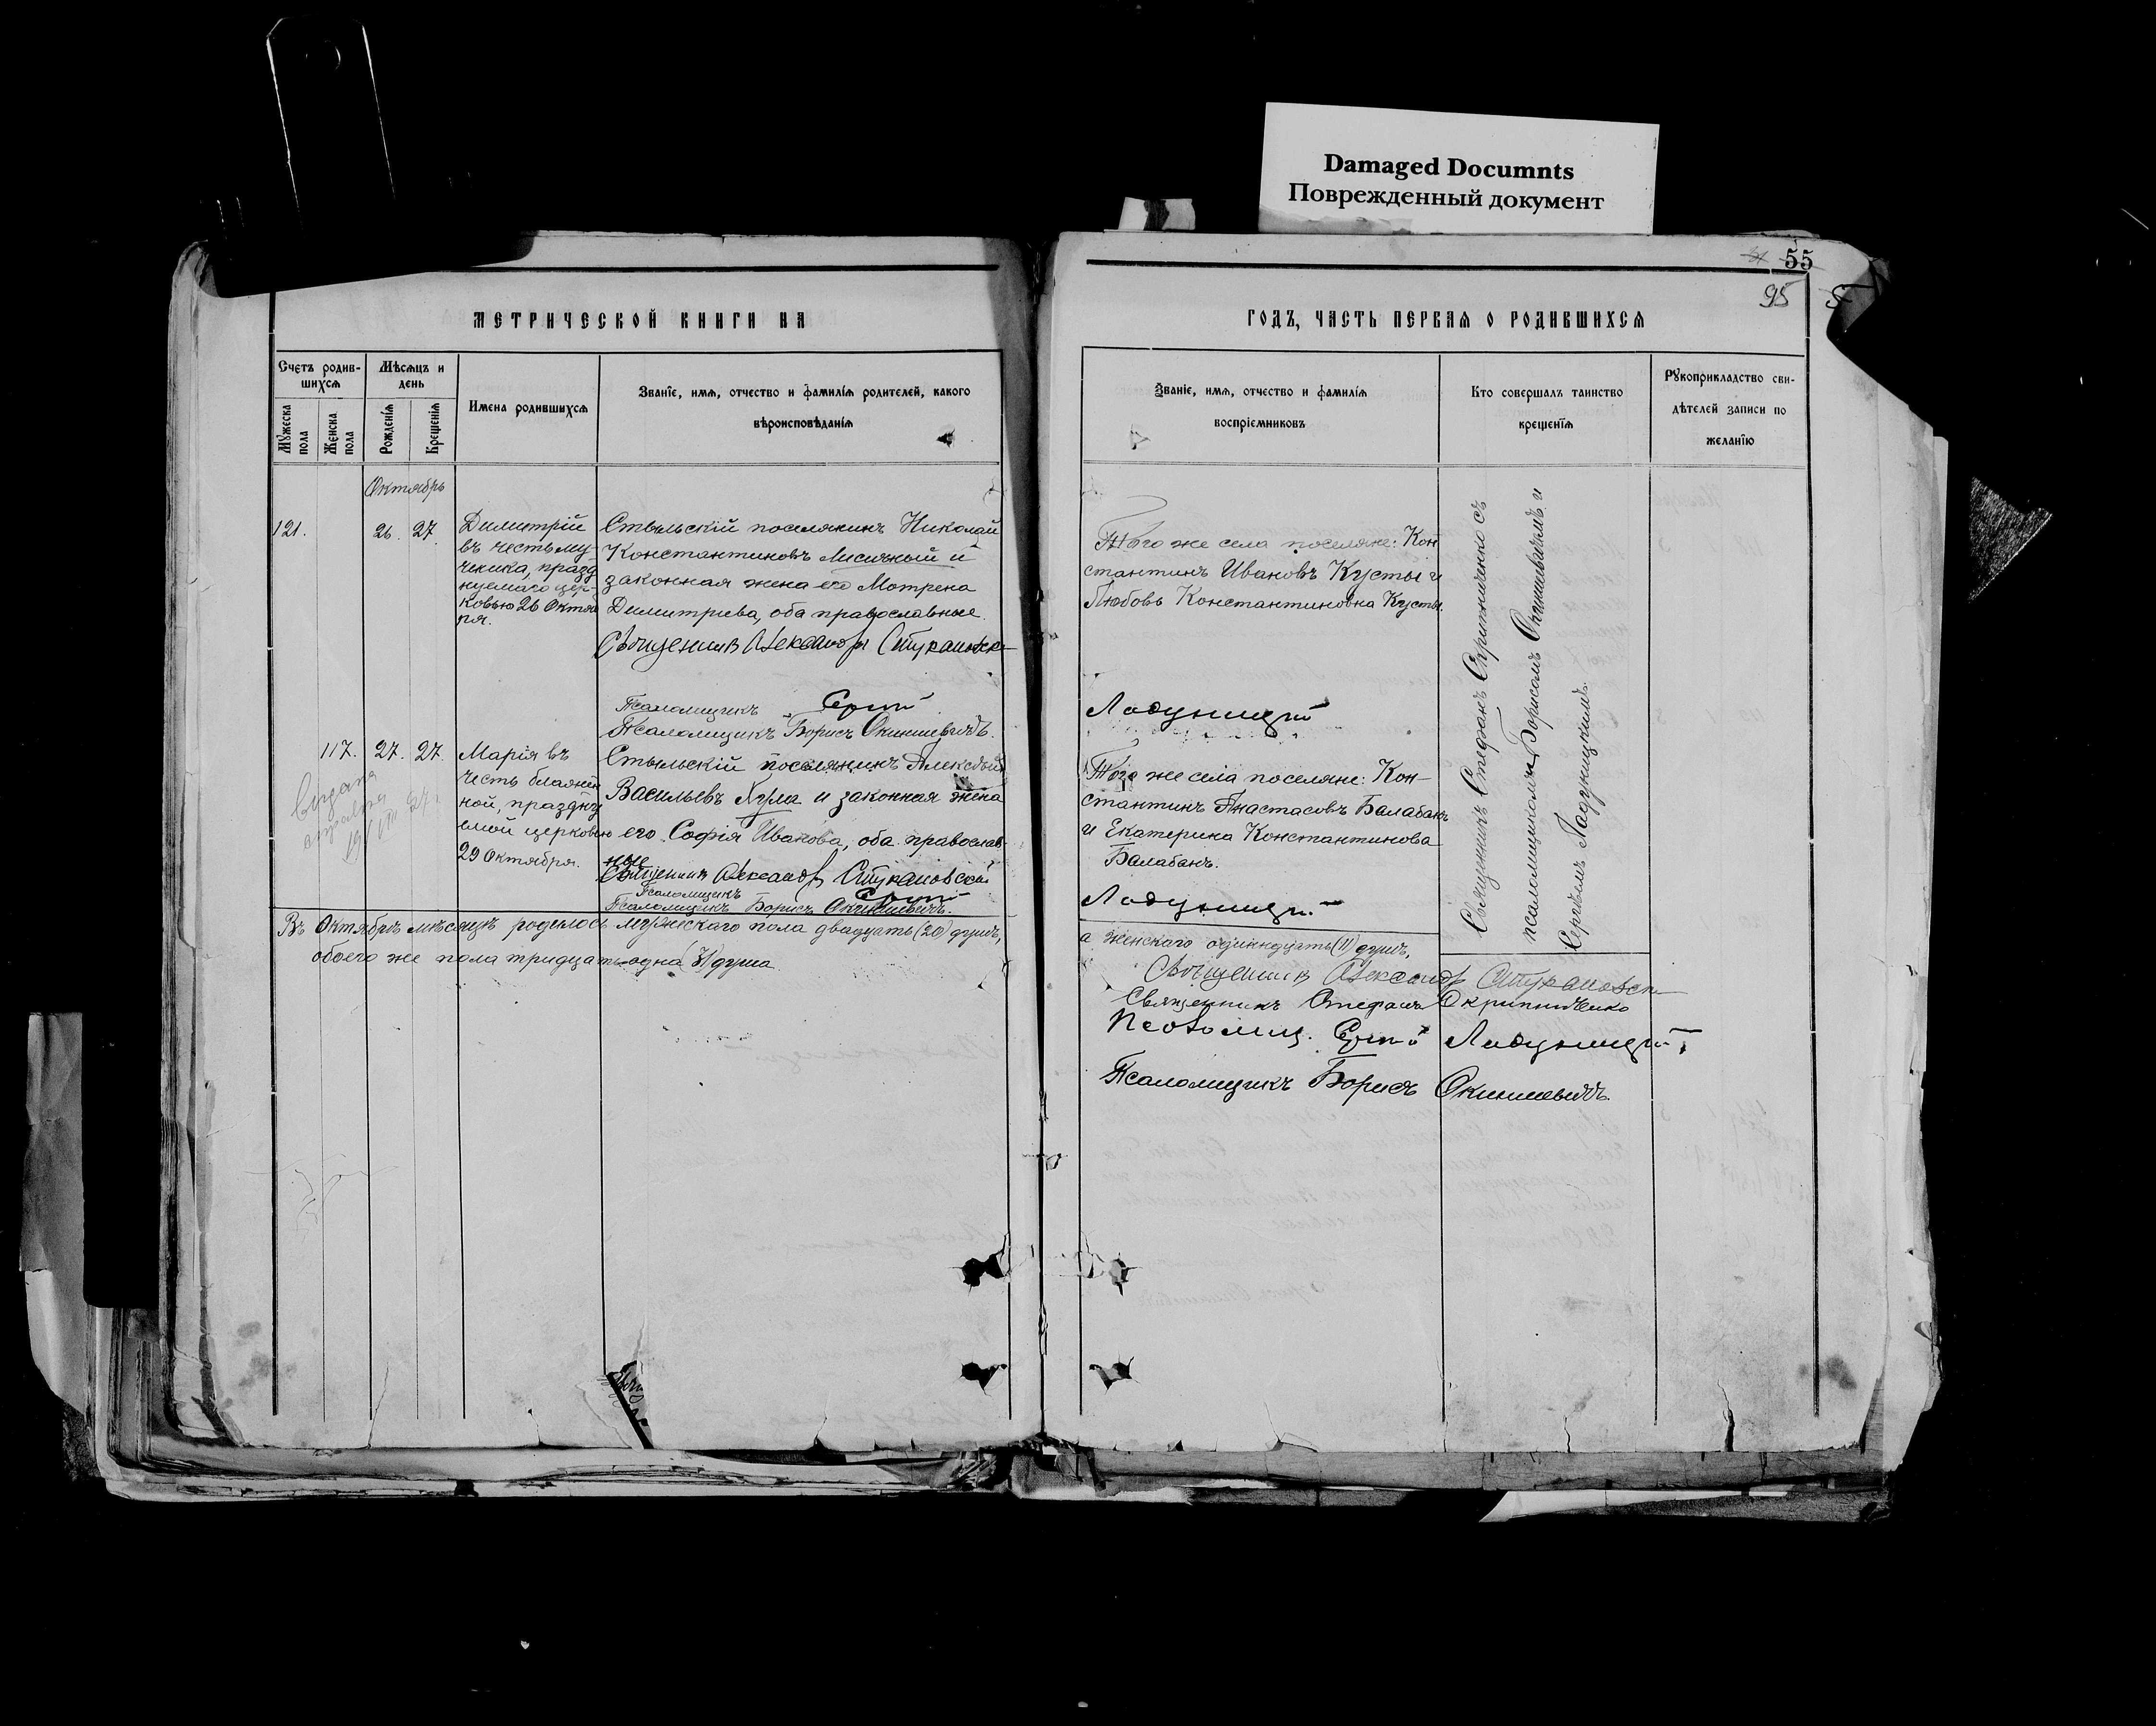 Damaged Documnts
Поврежденный документ
55
95
МЕТРИЧЕСКОЙ КНИГИ НА
ГОДЪ, ЧАСТЬ ПЕРВАЯ О РОДИВШИХСЯ
Счетъ родив-
шихся
Мѣсяцъ и
день
Мужеска
пола
Женска
пола
Рожденія
Крещенія
Имена родившихся
Званіе, имя, отчество и фамилія родителей, какого
вѣроисповѣданія
Званіе, имя, отчество и фамилія
воспріемниковъ
Кто совершалъ таинство
крещенія
Рукоприкладство сви-
дѣтелей записи по
желанію
Октябрь
121.
26. 27.
Димитрій
въ честь му-
ченика, празд
нуемаго цер-
ковью 26 Октяб
ря.
Стыльскій поселянинъ Николай
Константиновъ и
законная жена его Мотрена
Димитріева, оба православные.
Священникъ Александръ
Псаломщикъ Сергій
Псаломщикъ Борисъ Окиншевичъ.
Того же села поселяне: Кон
стантинъ Ивановъ Кусты и
Любовь Константиновна Кусты.
Ладуницкій
117. 27. 27.
Марія въ
честь блажен
ной, праздну
емой церковью
29 Октября.
Стыльскій поселянинъ Алексѣй
Васильевъ и законная жена
его Софія Иванова, оба православ-
ные
Священникъ Александръ
Псаломщикъ Сергій
Псаломщикъ Борисъ Окиншевичъ.
Того же села поселяне: Кон-
стантинъ Анастасовъ Балабанъ
и Екатерина Константинова
Балабанъ.
Ладуницкій
Священникъ Стефанъ Скрипниченко съ
псаломщиками Борисомъ Окиншевичемъ и
Сергѣемъ Ладуницкимъ.
Въ Октябрѣ мѣсяцѣ родилось мужескаго пола двадцать (20) душъ,
а женскаго одиннадцать (11) душъ,
обоего же пола тридцать одна (31) душа
Священникъ Александръ
Священникъ Стефанъ Скрипниченко
Псаломщ. Сергій Ладуницкій
Псаломщикъ Борисъ Окиншевичъ.